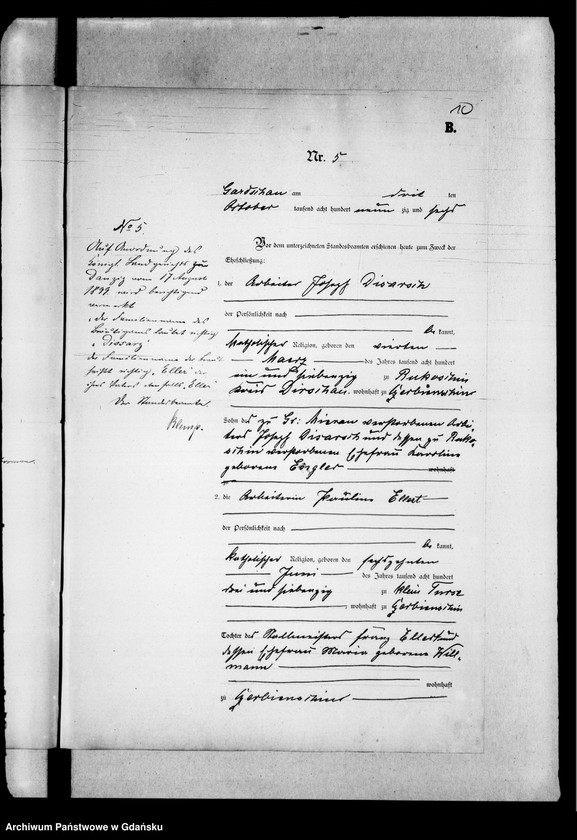 10
B.
Nr. 5
Gardschau am drit ten
October tausend acht hundert neun zig und sechs
No 5.
Auf Anordnung des
Königl. Landgerichts zu
Danzig vom 17 August
1897 wird berichtigend
vermerkt
der Familienname des
Bräutigams lautet richtig
"Disarz"
der Familienname der Braut
heißt richtig, Eller
ihres Vaters ebenfalls, Eller
Der Standesbeamte
Klemp.
Vor dem unterzeichneten Standesbeamten erschienen heute zum Zweck der
Eheschließung:
1. der Arbeiter Joseph Disarsch
der Persönlichkeit nach
be kannt,
katholischer Religion, geboren den vierten
Maerz des Jahres tausend acht hundert
ein und siebenzig zu Rukoschin
Kreis Dirschau, wohnhaft zu Gerbienschin
Sohn des zu Gr. verstorbenen Arbei-
ters Joseph Disarsch und dessen zu Ruko-
schin verstorbenen Ehefrau Karoline
geborene
wohnhaft
2. die Arbeiterin Pauline Ellert
der Persönlichkeit nach
be kannt,
katholischer Religion, geboren den sechszehnten
Juni des Jahres tausend acht hundert
drei und siebenzig zu Klein Turse
, wohnhaft zu Gerbienschin
Tochter des Stellmeisters Franz Ellert und
dessen Ehefrau Maria geborene Will-
mann
wohnhaft
zu Gerbienschin
Archiwum Państwowe w Gdańsku